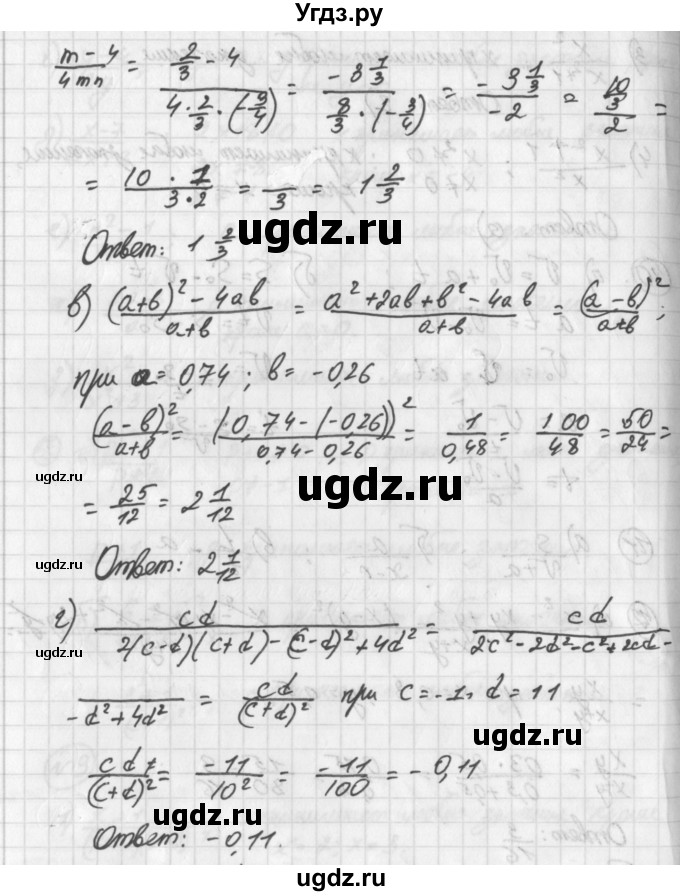 Угдз.ру
(m - 4)/(4mn) = (2/3 - 4)/(4·2/3·(-3/4)) = (-3 1/3)/(8/3·(-3/4)) = (-3 1/3)/(-2) = (10/3)/2 =
= (10 · 1)/(3·2) = /3 = 1 2/3
ugdz.ru
Ответ: 1 2/3
в) ((a+b)² - 4ab)/(a+b) = (a² + 2ab + b² - 4ab)/(a+b) = (a - b)²/(a+b) ;
при a = 0,74 ; b = -0,26
(a - b)²/(a+b) = (0,74 - (-0,26))²/(0,74 - 0,26) = 1/0,48 = 100/48 = 50/24 =
ugdz.ru
ugdz.ru
= 25/12 = 2 1/12
ugdz.ru
Ответ: 2 1/12
г) cd/(2(c-d)(c+d) - (c-d)² + 4d²) = cd/(2c² - 2d² - c² + 2cd -
/(-d² + 4d²) = cd/(c+d)² при c = -1, d = 11
ugdz.ru
cd/(c+d)² = -11/10² = -11/100 = -0,11
ugdz.ru
Ответ: -0,11.
ugdz.ru